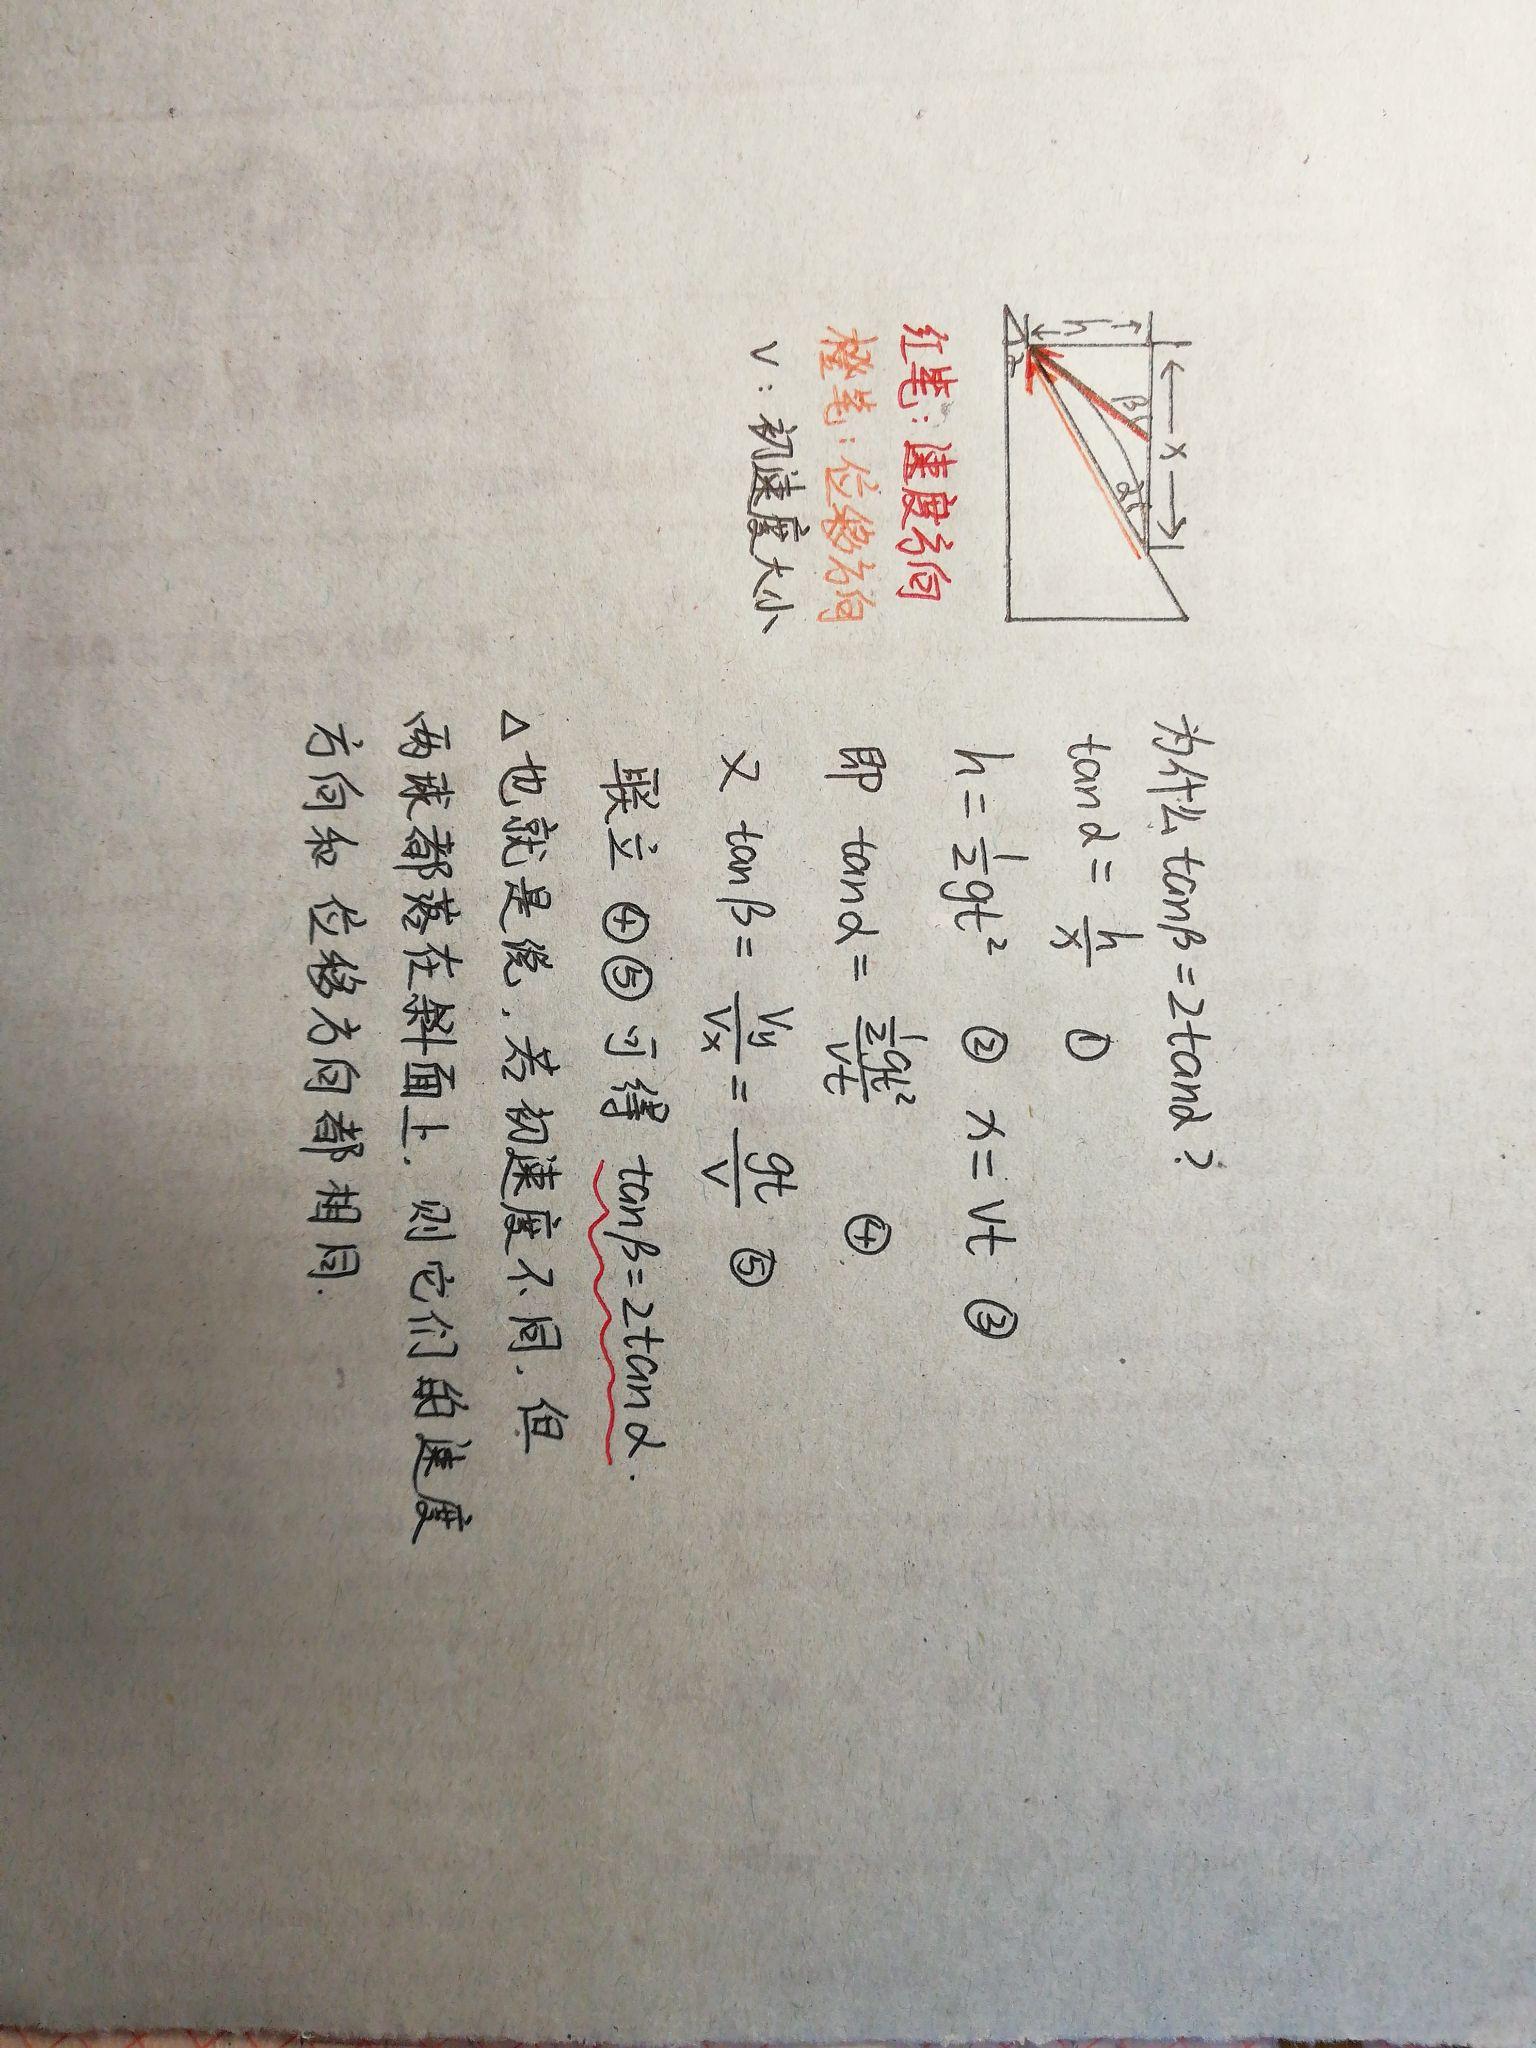 x
h
β
α
α
红笔：速度方向
橙笔：位移方向
v：初速度大小
为什么 tanβ=2tanα？
tanα=h/x ①
h=½gt² ② x=vt ③
即 tanα=½gt²/vt ④
又 tanβ=vy/vx=gt/v ⑤
联立 ④⑤ 可得 tanβ=2tanα.
△也就是说，若初速度不同，但
两球都落在斜面上，则它们的速度
方向和位移方向都相同.